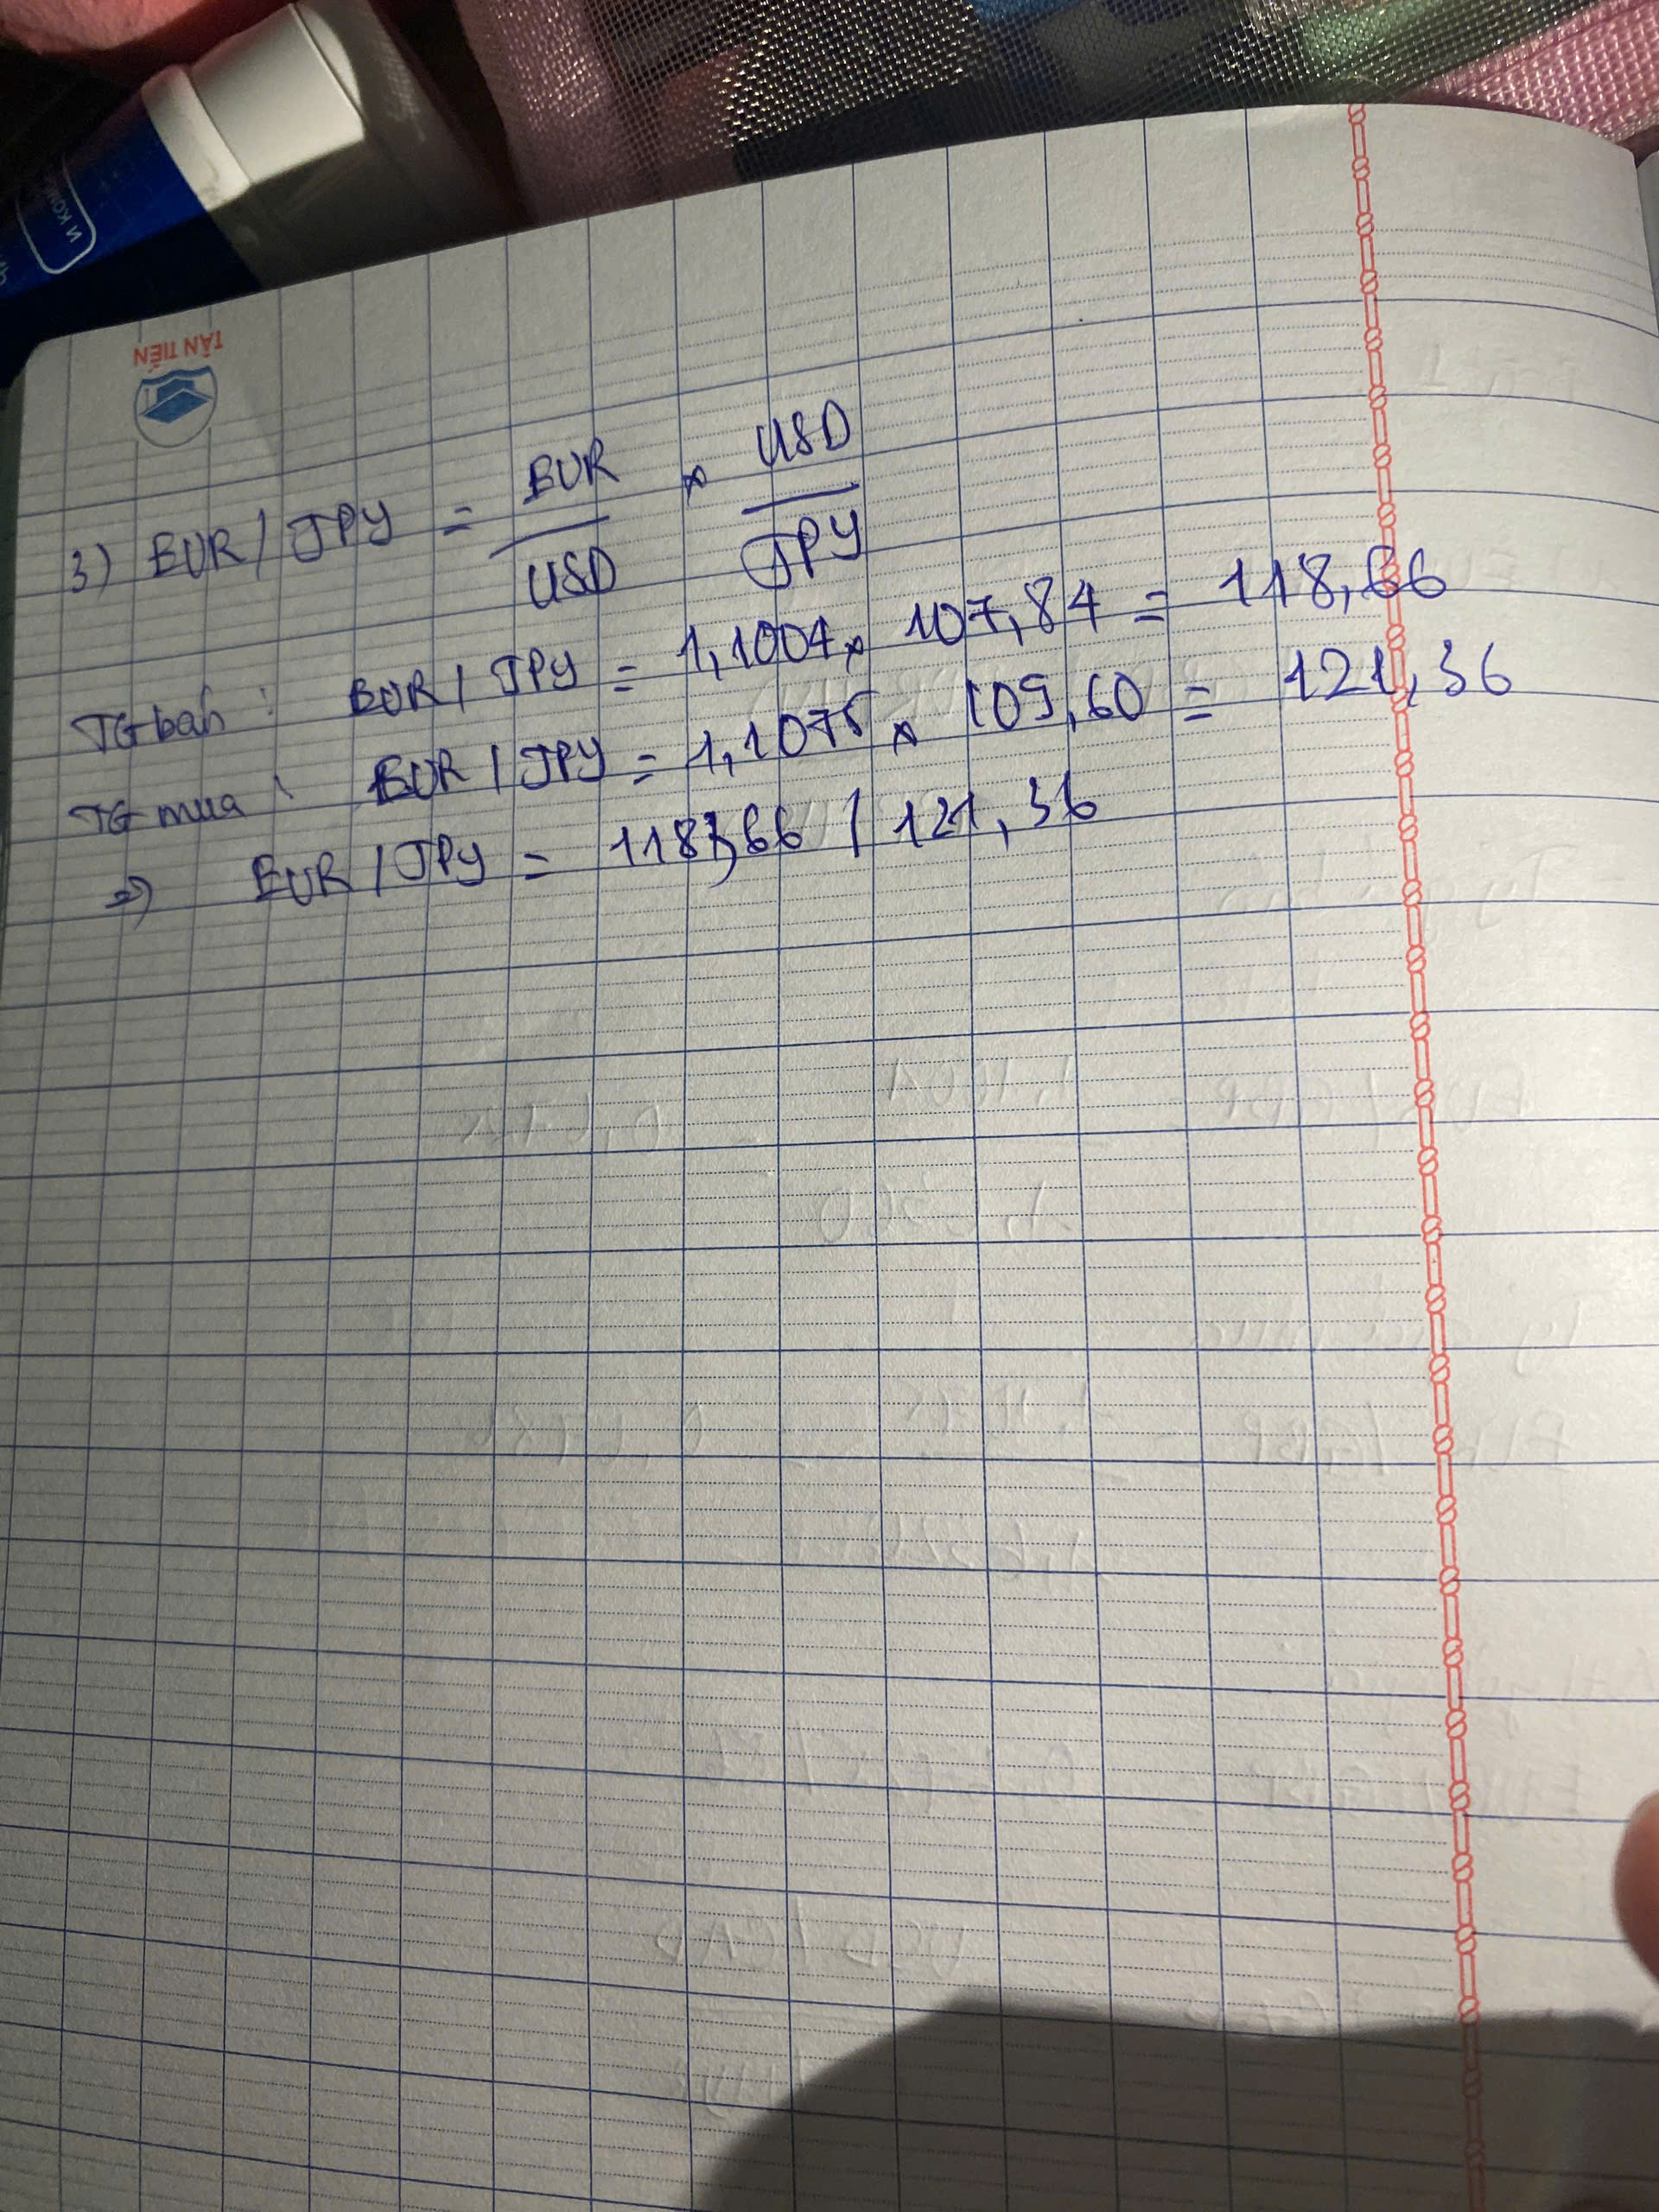 TÂN TIẾN
3) EUR / JPY = EUR/USD × USD/JPY
TG bán : EUR / JPY = 1,1004 × 107,84 = 118,66
TG mua : EUR / JPY = 1,1075 × 109,60 = 121,36
=> EUR / JPY = 118,66 / 121,36